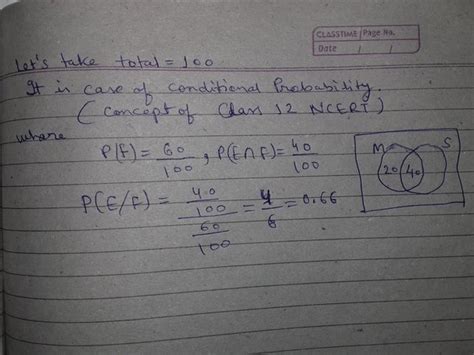 CLASSTIME Page No.
Date / /
Let's take total = 100
It is case of conditional Probability.
(concept of Class 12 NCERT)
where
P(F) = 60/100 , P(E∩F) = 40/100
M S
20 40
P(E/F) = (40/100)/(60/100) = 4/6 = 0.66